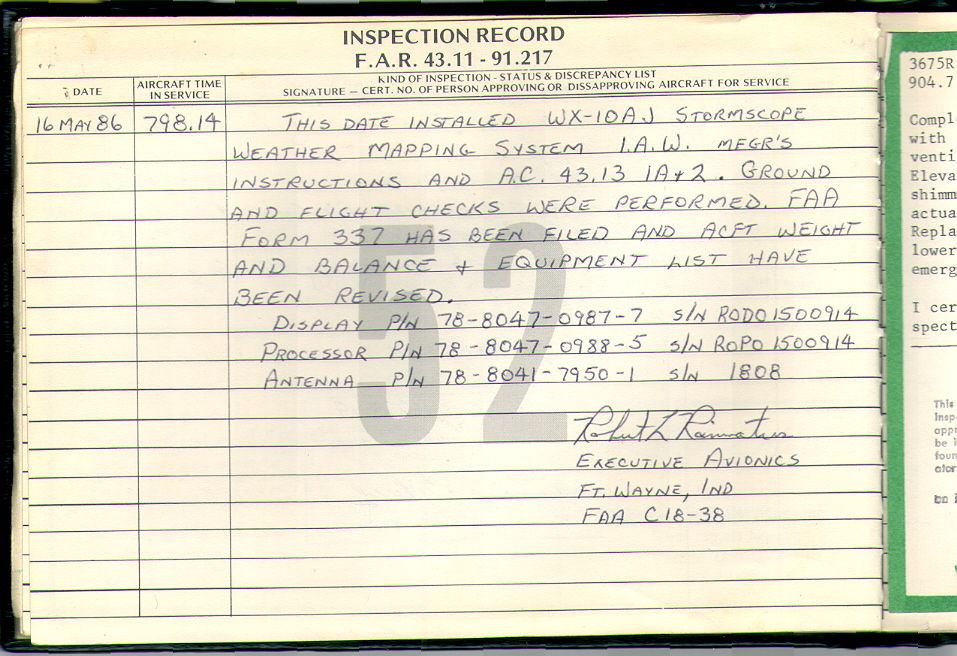 INSPECTION RECORD
F.A.R. 43.11 - 91.217
DATE
AIRCRAFT TIME IN SERVICE
KIND OF INSPECTION - STATUS & DISCREPANCY LIST
SIGNATURE — CERT. NO. OF PERSON APPROVING OR DISSAPPROVING AIRCRAFT FOR SERVICE
16 MAY 86 798.14 THIS DATE INSTALLED WX-10AJ STORMSCOPE
WEATHER MAPPING SYSTEM I.A.W. MFGR'S
INSTRUCTIONS AND A.C. 43.13 1A+2. GROUND
AND FLIGHT CHECKS WERE PERFORMED. FAA
FORM 337 HAS BEEN FILED AND ACFT WEIGHT
AND BALANCE + EQUIPMENT LIST HAVE
BEEN REVISED.
DISPLAY P/N 78-8047-0987-7 S/N RODO1500914
PROCESSOR P/N 78-8047-0988-5 S/N ROPO1500914
ANTENNA P/N 78-8041-7950-1 S/N 1808
52
EXECUTIVE AVIONICS
FT. WAYNE, IND
FAA C18-38
3675R
904.7
Compl
with
venti
Eleva
shimm
actua
Repla
lower
emerg
I cer
spect
This
Inspe
appr
be i
foun
ator